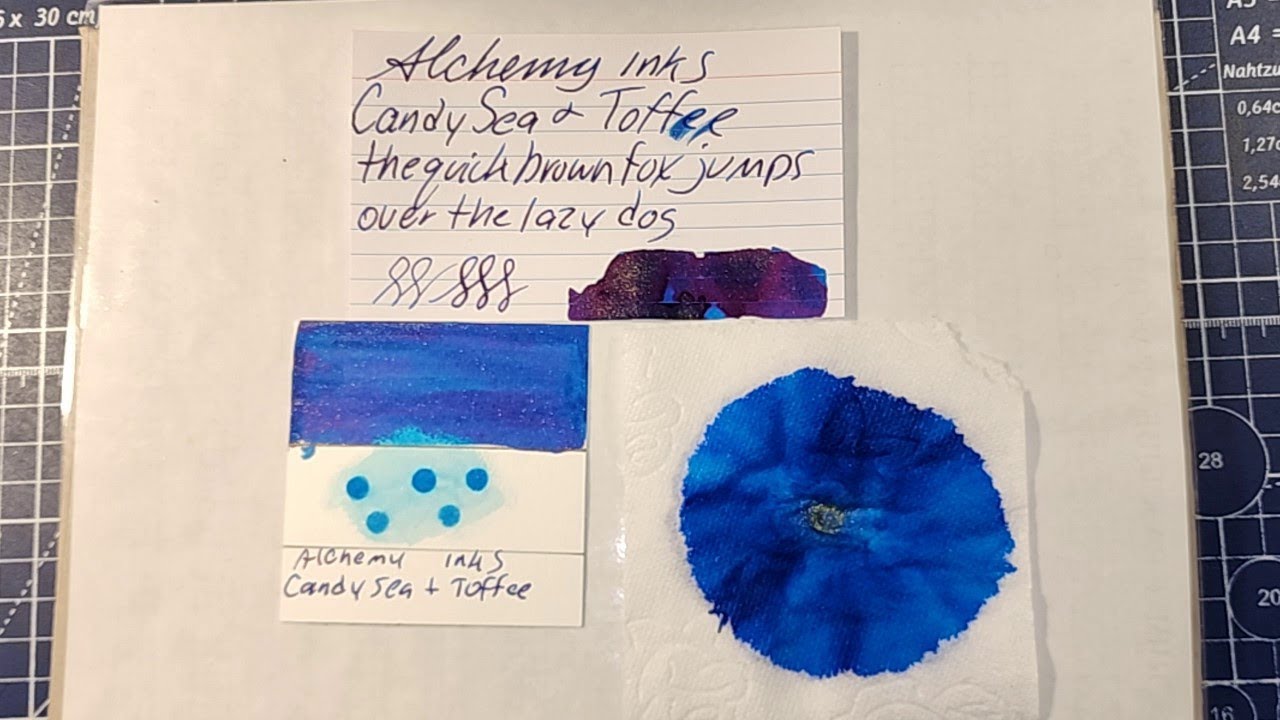 5 x 30 cm
A5
A4 =
Nahtzu
0,64c
1,27c
2,54
28
20
16
Alchemy inks
Candy Sea & Toffee
the quick brown fox jumps
over the lazy dog
Alchemy inks
Candy Sea + Toffee